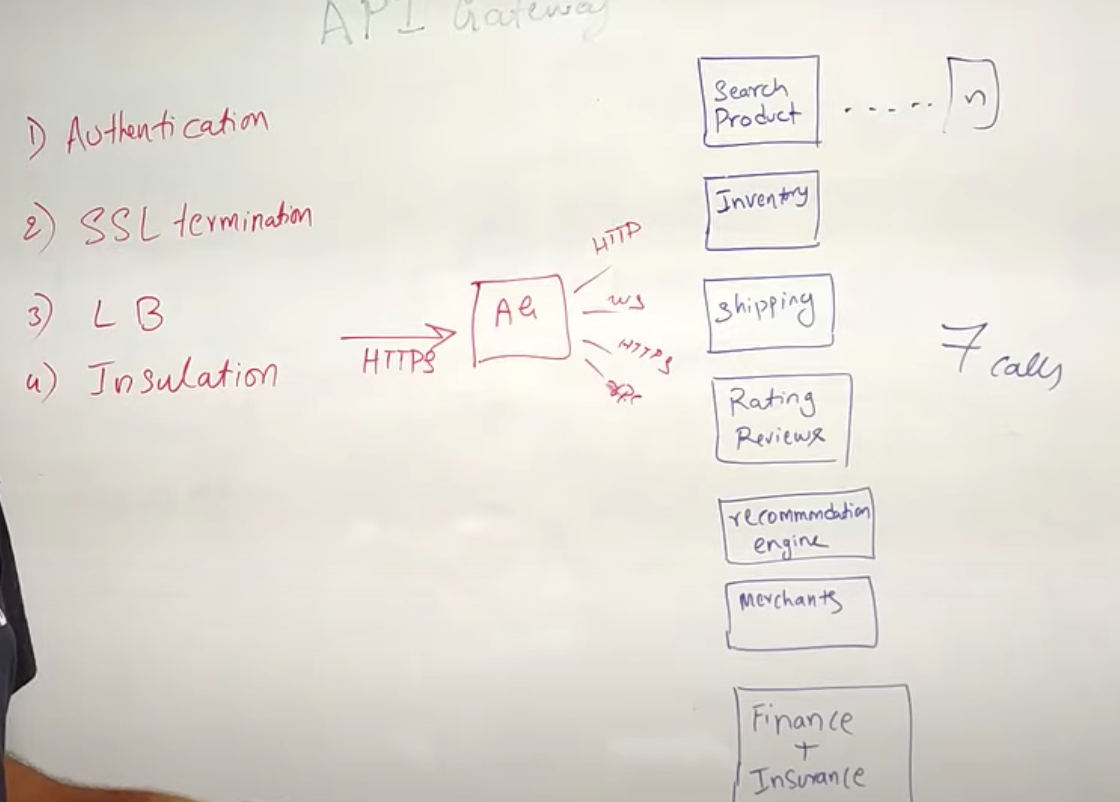 API Gateway
1) Authentication
2) SSL termination
3) LB
4) Insulation
HTTPS
AG
HTTP
WS
HTTPS
Search
Product
..... n
Inventory
Shipping
Rating
Reviews
recommndation
engine
Merchants
Finance
+
Insurance
7 calls